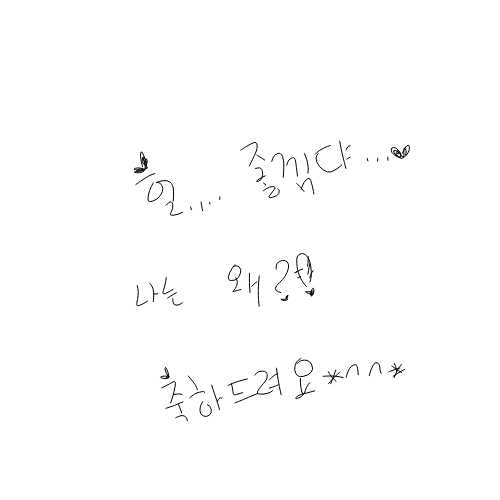 헐.... 좋겜다...♥
나는 왜?!
축하드려요*^^*